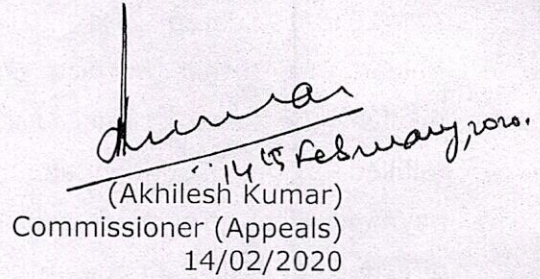 Akumar
14th February, 2020.
(Akhilesh Kumar)
Commissioner (Appeals)
14/02/2020